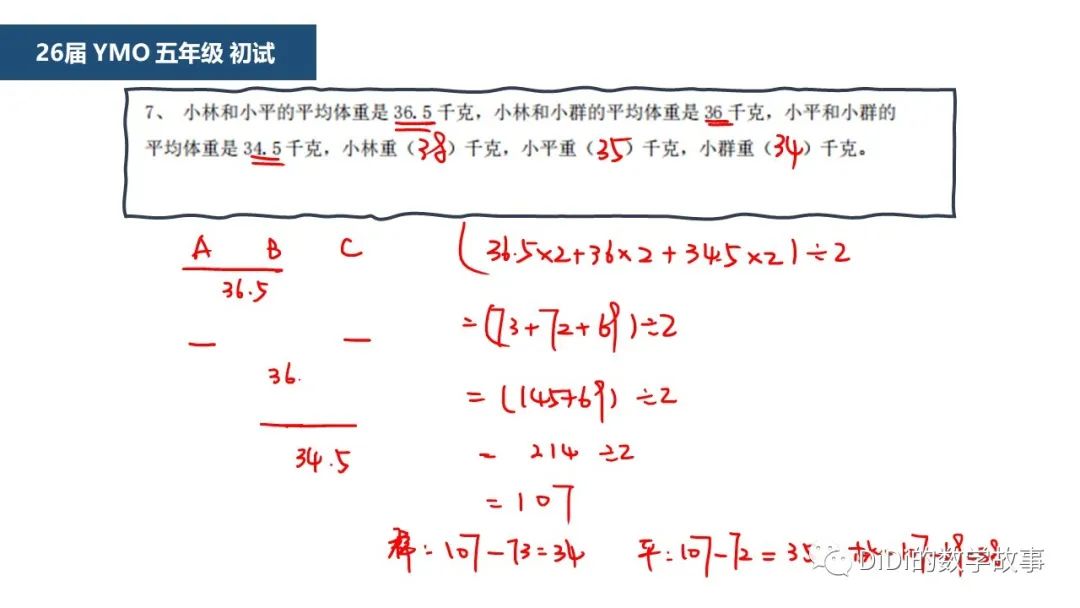 26届 YMO 五年级 初试
7、 小林和小平的平均体重是 36.5 千克，小林和小群的平均体重是 36 千克，小平和小群的
平均体重是 34.5 千克，小林重（38）千克，小平重（35）千克，小群重（34）千克。
A B C
36.5
36.
34.5
(36.5×2+36×2+34.5×2)÷2
=(73+72+69)÷2
=(145+69)÷2
= 214 ÷2
=107
群：107-73=34 平：107-72=35
DiDi的数学故事